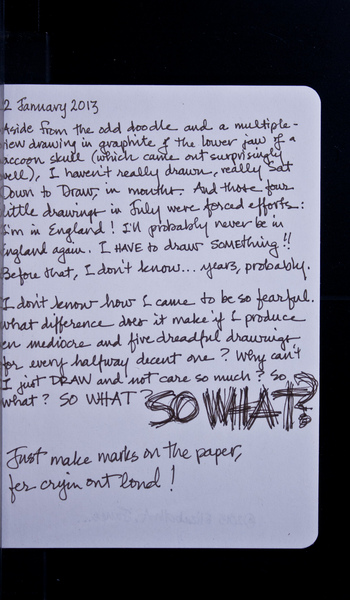 2 January 2013
Aside from the odd doodle and a multiple-
view drawing in graphite of the lower jaw of a
raccoon skull (which came out surprisingly
well), I haven't really drawn, really Sat
Down to Draw, in months. And those four
little drawings in July were forced efforts:
I'm in England! I'll probably never be in
England again. I HAVE to draw SOMETHING!!
Before that, I don't know... years, probably.
I don't know how I came to be so fearful.
What difference does it make if I produce
ten mediocre and five dreadful drawings
for every halfway decent one? Why can't
I just DRAW and not care so much? So
what? SO WHAT? SO WHAT?
Just make marks on the paper,
fer cryin out loud!